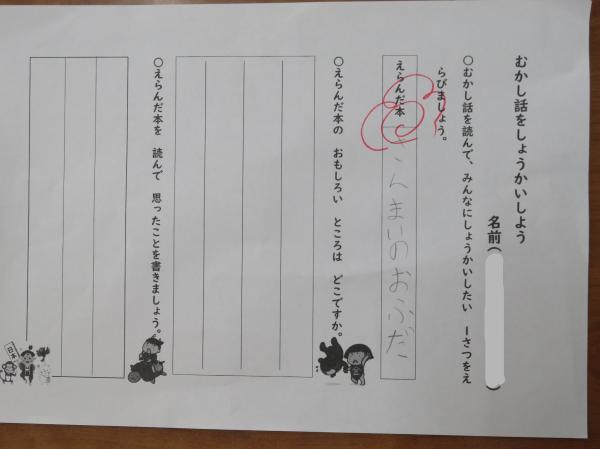 むかし話をしょうかいしよう
名前(　　　　)
〇むかし話を読んで、みんなにしょうかいしたい　一さつをえ
らびましょう。
えらんだ本
さんまいのおふだ
〇えらんだ本の　おもしろい　ところは　どこですか。
〇えらんだ本を　読んで　思ったことを書きましょう。
日本一